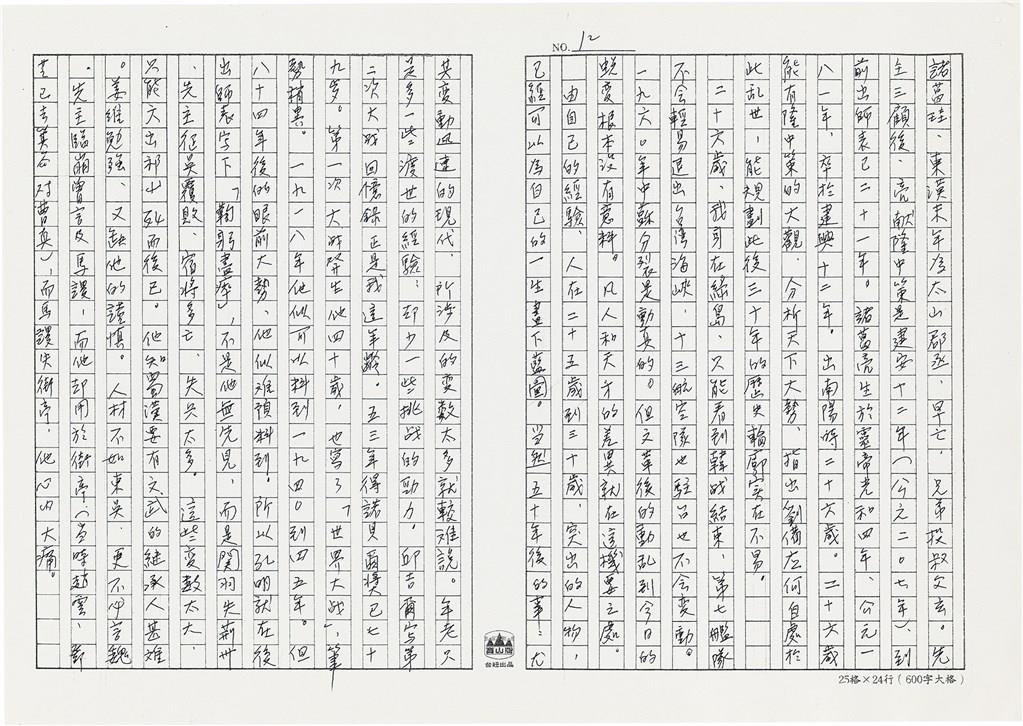 NO. 12
諸葛珪、東漢末年為太山郡丞、早亡、兄弟投叔父玄。先
主三顧後、亮獻隆中策是建安十二年（公元二〇七年）、到
前出師表已二十一年。諸葛亮生於靈帝光和四年、公元一
八一年、卒於建興十二年。出南陽時二十六歲。二十六歲
能有隆中策的大觀、分析天下大勢、指出劉備在何自處於
此亂世，能規劃此後三十年的歷史輪廓实在不易。
二十六歲、我身在綠島、只能看到韓战結束、第七艦隊
不会輕易退出台湾海峽、十三航空隊也駐台也不会変動。
一九六〇年中蘇分裂是動真的。但文革後的動乱到今日的
蜕变根本没有意料。凡人和天才的差異就在這機要之處。
由自己的經驗、人在二十五歲到三十歲、突出的人物，
已經可以為自己的一生畫下藍圖。当然五十年後的事：尤
其变動迅速的現代、所涉及的变数太多就較难說。年老只
是多一些渡世的經驗；却少一些挑战的動力。邱吉爾写第
二次大战回憶錄正是我這年齡。五三年得諾貝爾獎已七十
九岁。第一次大战発生他四十歲，也寫了「世界大战」，筆
勢稍異。一九一八年他似可以料到一九四〇到四五年。但
八十四年後的眼前大勢、他似难預料到。所以孔明就在後
出師表写下「鞠躬盡瘁」，不是他無先見，而是関羽失荆州
、先主征吳覆敗、宿將多亡、失只太多。這些变数太大、
只能六出祁山死而後已。他知蜀漢要有文武的継承人甚难
。姜維勉強、又缺他的謹慎。人材不如東吳、更不必言魏
。先主臨崩曾言及馬謖，而他却用於街亭（当時趙雲、鄧
芝已去箕谷对曹真），而馬謖失街亭、他心內大痛。
台社出品
25格×24行（600字大格）